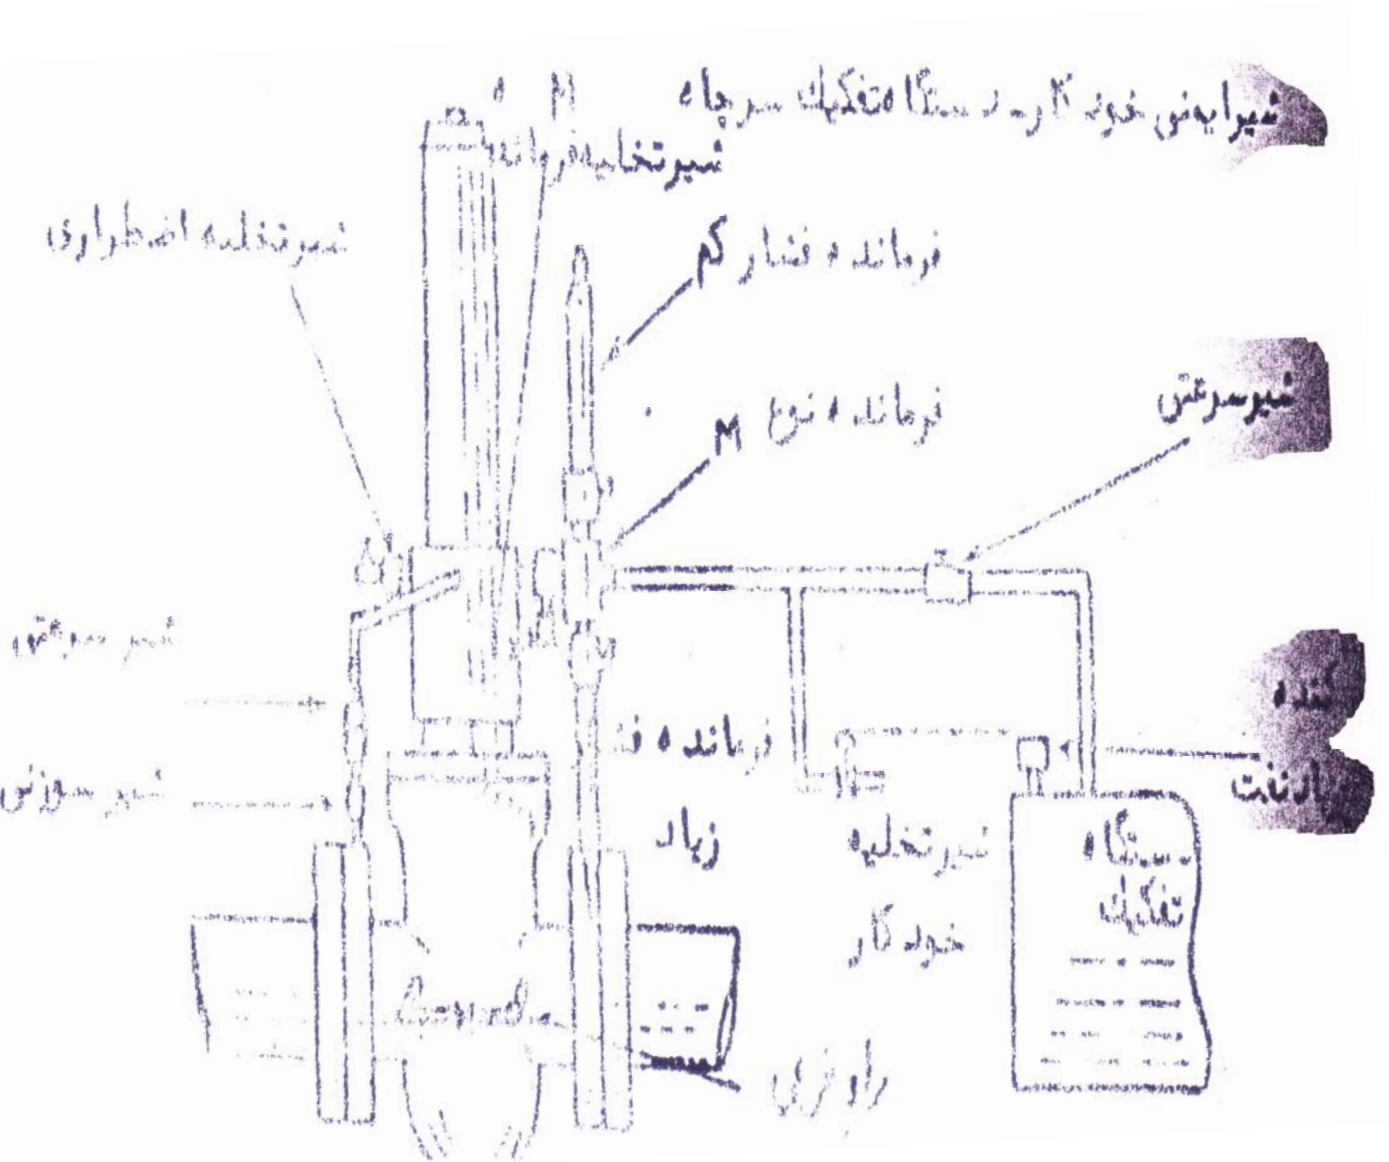 شیر ایمنی خودکار دستگاه تفکیک سرچاه
M ه
شیر تخلیه فرمانده
شیر تخلیه اضطراری
فرمانده فشار کم
فرمانده نوع M
شیر سرعتی
شیر سرعتی
کننده
شیر سوزنی
فرمانده ف
زیاد
شیر تخلیه
خودکار
دستگاه
تفکیک